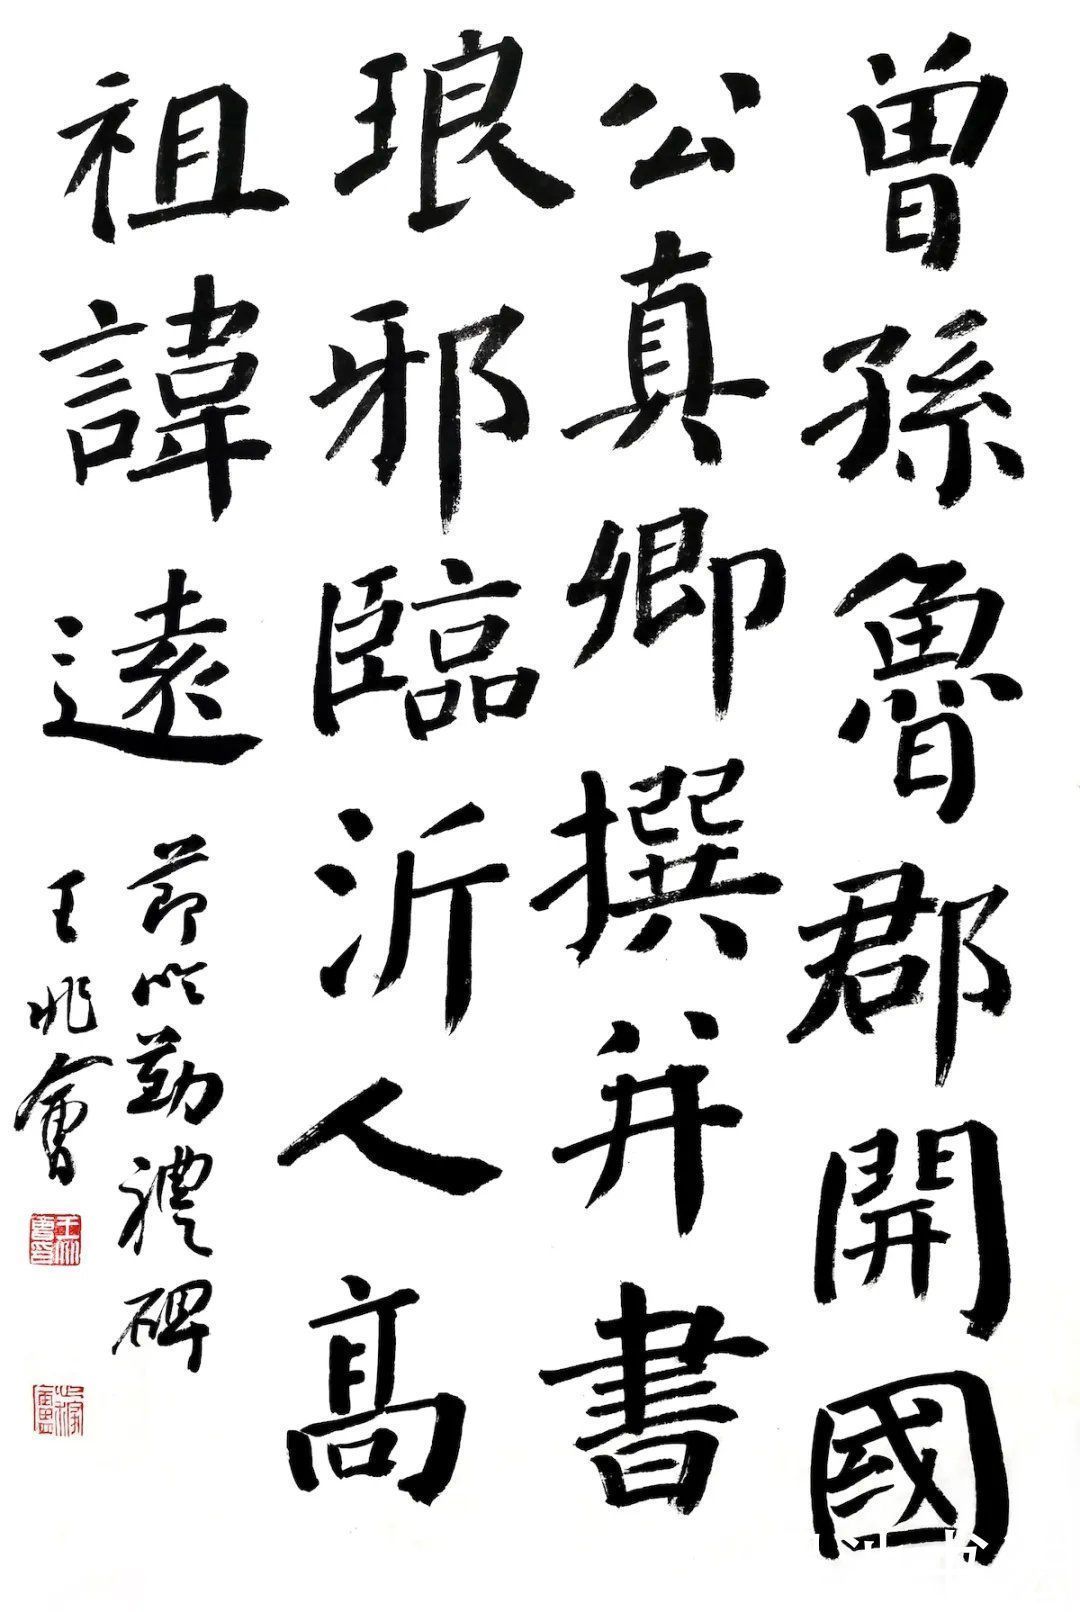 曾孫魯郡開國
公真卿撰并書
琅邪臨沂人高
祖諱遠
節臨勤禮碑
王兆會